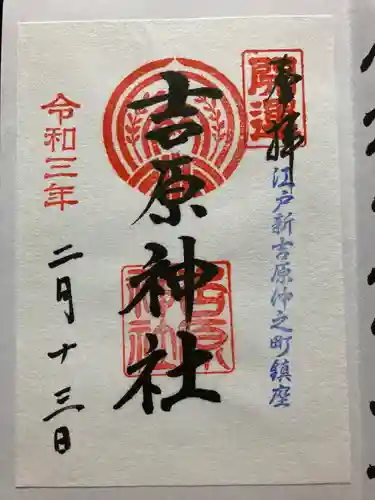 奉拝
開運
江戸新吉原仲之町鎮座
吉原神社
吉原神社
令和三年
二月十三日